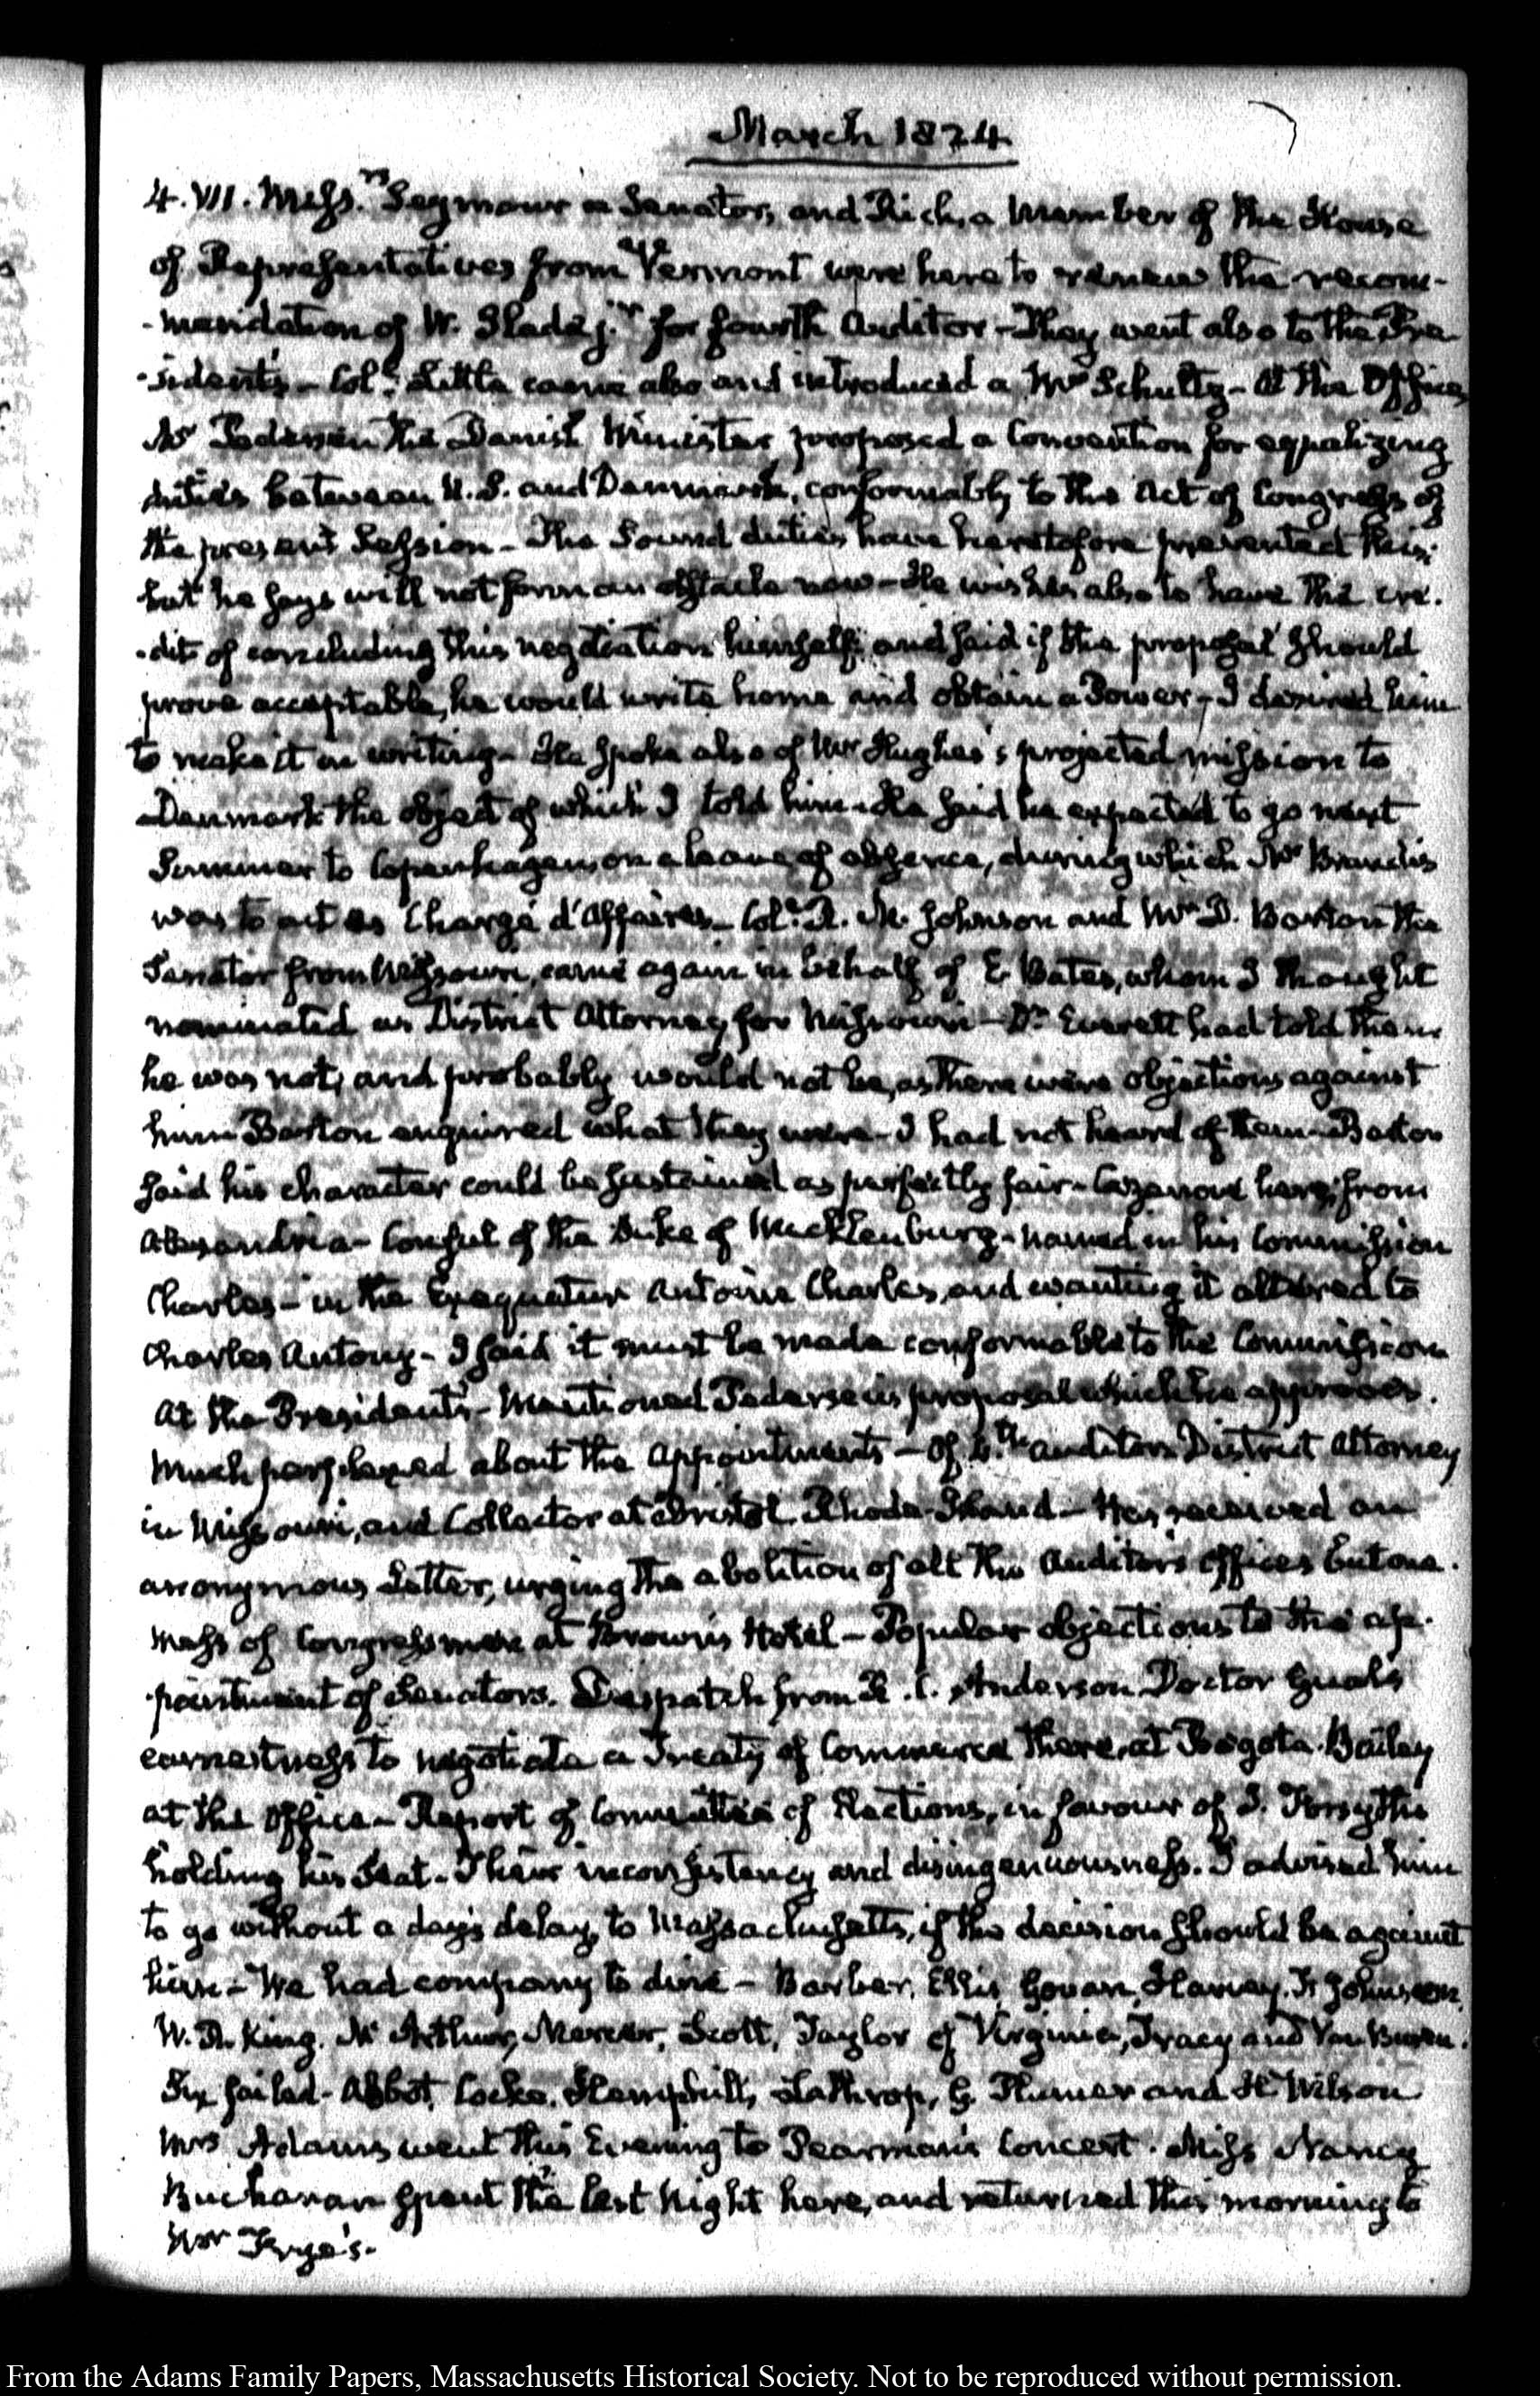 March 1824
4. VII. Mess.rs Seymour a Senator, and Rich, a member of the House
of Representatives from Vermont were here to renew the recom-
-mendation of W. Slade j.r for fourth Auditor – They went also to the Pre
-sident's – Col.l Little came also and introduced a Mr Schultz – At the Office,
Mr Pedersen the Danish Minister proposed a Convention for equalizing
duties between U.S. and Denmark, conformably to the Act of Congress of
the present Session – The Sound duties have heretofore prevented this;
but he says will not form an obstacle now – He wishes also to have the cre-
-dit of concluding this negotiation himself; and said if the proposal should
prove acceptable, he would write home and obtain a Power – I desired him
to make it in writing – He spoke also of Mr Hughes's projected mission to
Denmark the object of which I told him – He said he expected to go next
Summer to Copenhagen, on a leave of absence, during which Mr Brandis
was to act as Chargé d'Affaires – Col.l R. M. Johnson and Mr D. Barton the
Senator from Missouri, came again in behalf of E Bates, whom I thought
nominated as District Attorney for Missouri – Dr Everett had told them
he was not, and probably would not be, as there were objections against
him Barton enquired what they were – I had not heard of them – Barton
said his character could be sustained as perfectly fair – Cazenove here, from
Alexandria – Consul of the Duke of Mecklenburg – named in his Commission
Charles – in the Exequatur Antoine Charles, and wanting it altered to
Charles Antony – I said it must be made conformable to the Commission
At the President's – Mentioned Pedersen's proposal which he approves.
Much perplexed about the appointments – of 4.th Auditor District Attorney
in Missouri, and Collector at Bristol Rhode-Island – Has received an
anonymous Letter, urging the abolition of all the Auditor's Offices but one.
Mess of Congressmen at Brown's Hotel – Popular objections to the ap-
-pointment of Senators. Despatch from R. C. Anderson Doctor Gual's
earnestness to negotiate a Treaty of Commerce there, at Bogota. Bailey
at the Office – Report of Committee of Elections, in favour of J. Forsyth's
holding his Seat – Their inconsistency and disingenuousness. I advised him
to go without a day's delay, to Massachusetts, if the decision should be against
him – We had company to dine – Barber, Ellis, Govan, Harvey, Johnson,
W. R. King, Mc Arthur, Mercer, Scott, Taylor of Virginia, Tracy and Van Buren.
Six failed – Abbot, Cocke, Hemphill, Lathrop, G. Plumer and H Wilson
Mrs Adams went this Evening to Pearman's Concert. Miss Nancy
Buchanan spent the last Night here, and returned this morning to
Mr Frye's.
From the Adams Family Papers, Massachusetts Historical Society. Not to be reproduced without permission.